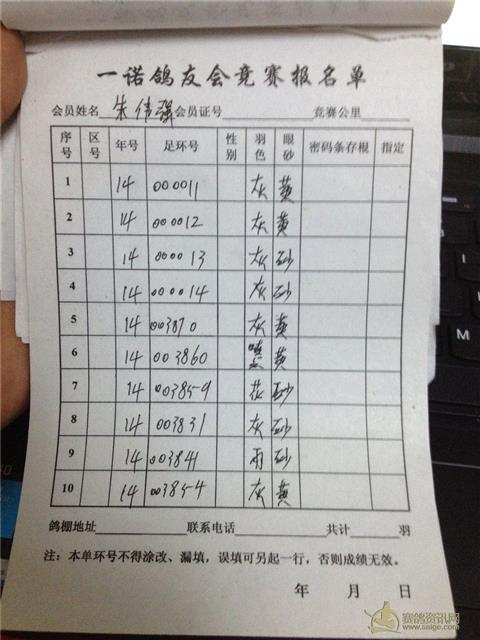 一诺鸽友会竞赛报名单
会员姓名朱伟强会员证号 竞赛公里
序号 区号 年号 足环号 性别 羽色 眼砂 密码条存根 指定
1 14 000011 灰 黄
2 14 000012 灰 黄
3 14 000013 灰 砂
4 14 000014 灰 砂
5 14 003870 灰 黄
6 14 003860 黄
7 14 003859 花 砂
8 14 003831 灰 砂
9 14 003841 雨 砂
10 14 003854 灰 黄
鸽棚地址 联系电话 共计 羽
注：本单环号不得涂改、漏填，误填可另起一行，否则成绩无效。
年 月 日
赛鸽资讯网
www.saige.com